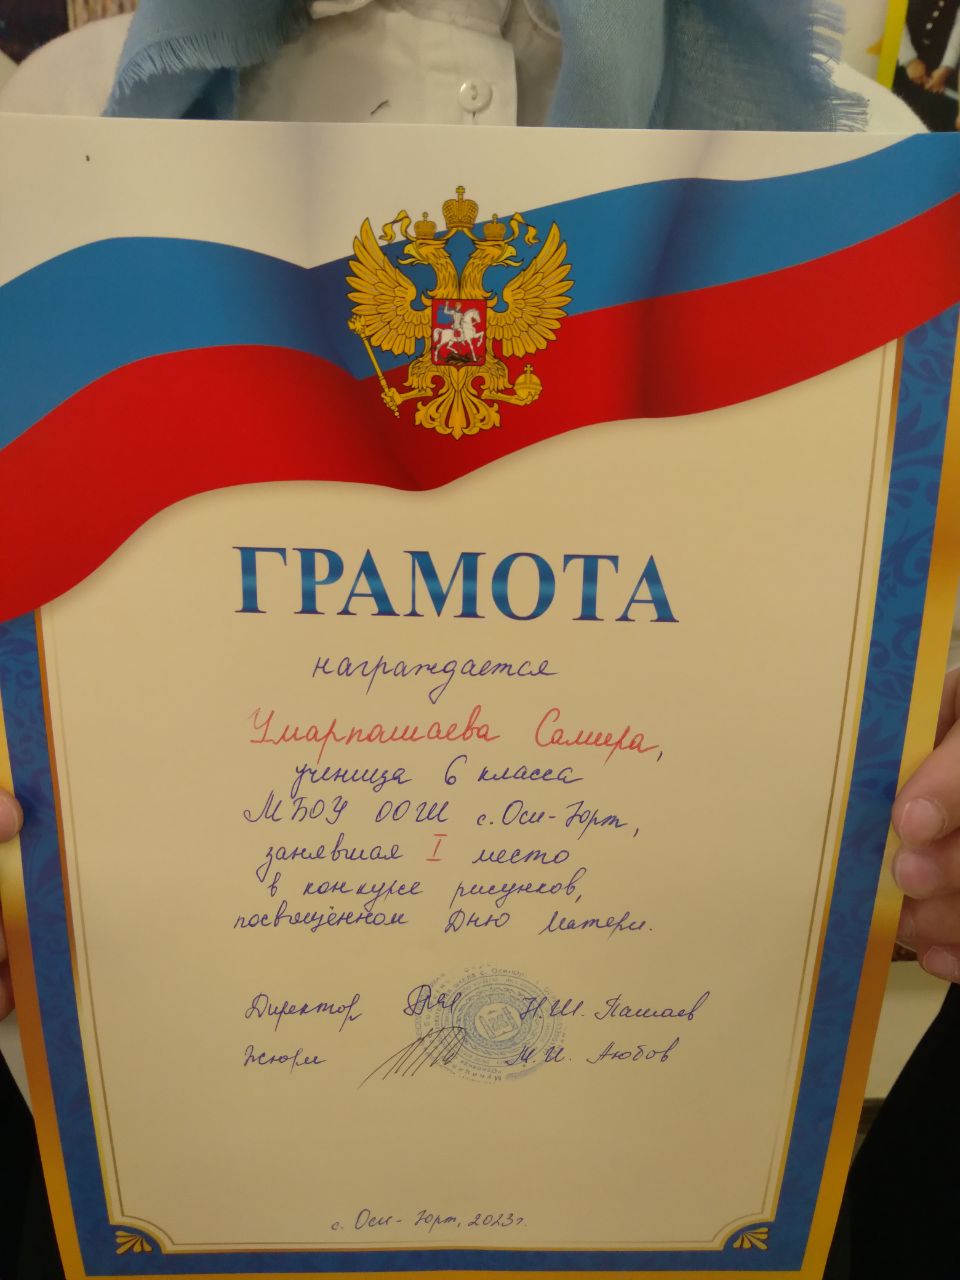 ГРАМОТА
награждается
Умарпашаева Самира,
ученица 6 класса
МБОУ ООШ с. Оси-Юрт,
занявшая I место
в конкурсе рисунков,
посвящённом Дню Матери.
Директор Н.Ш. Пашаев
Жюри М.И. Аюбов
с. Оси-Юрт, 2023г.